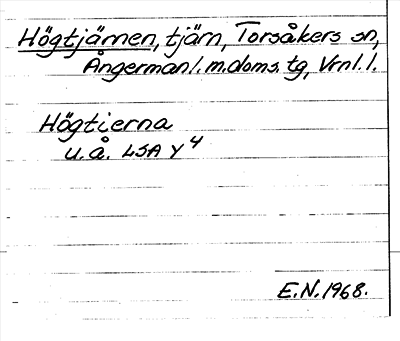 Högtjärnen, tjärn, Torsåkers sn,
Ångermanl. m. doms. tg, Vrnl. l.
Högtierna
u. å. LSA Y 4
E.N. 1968.